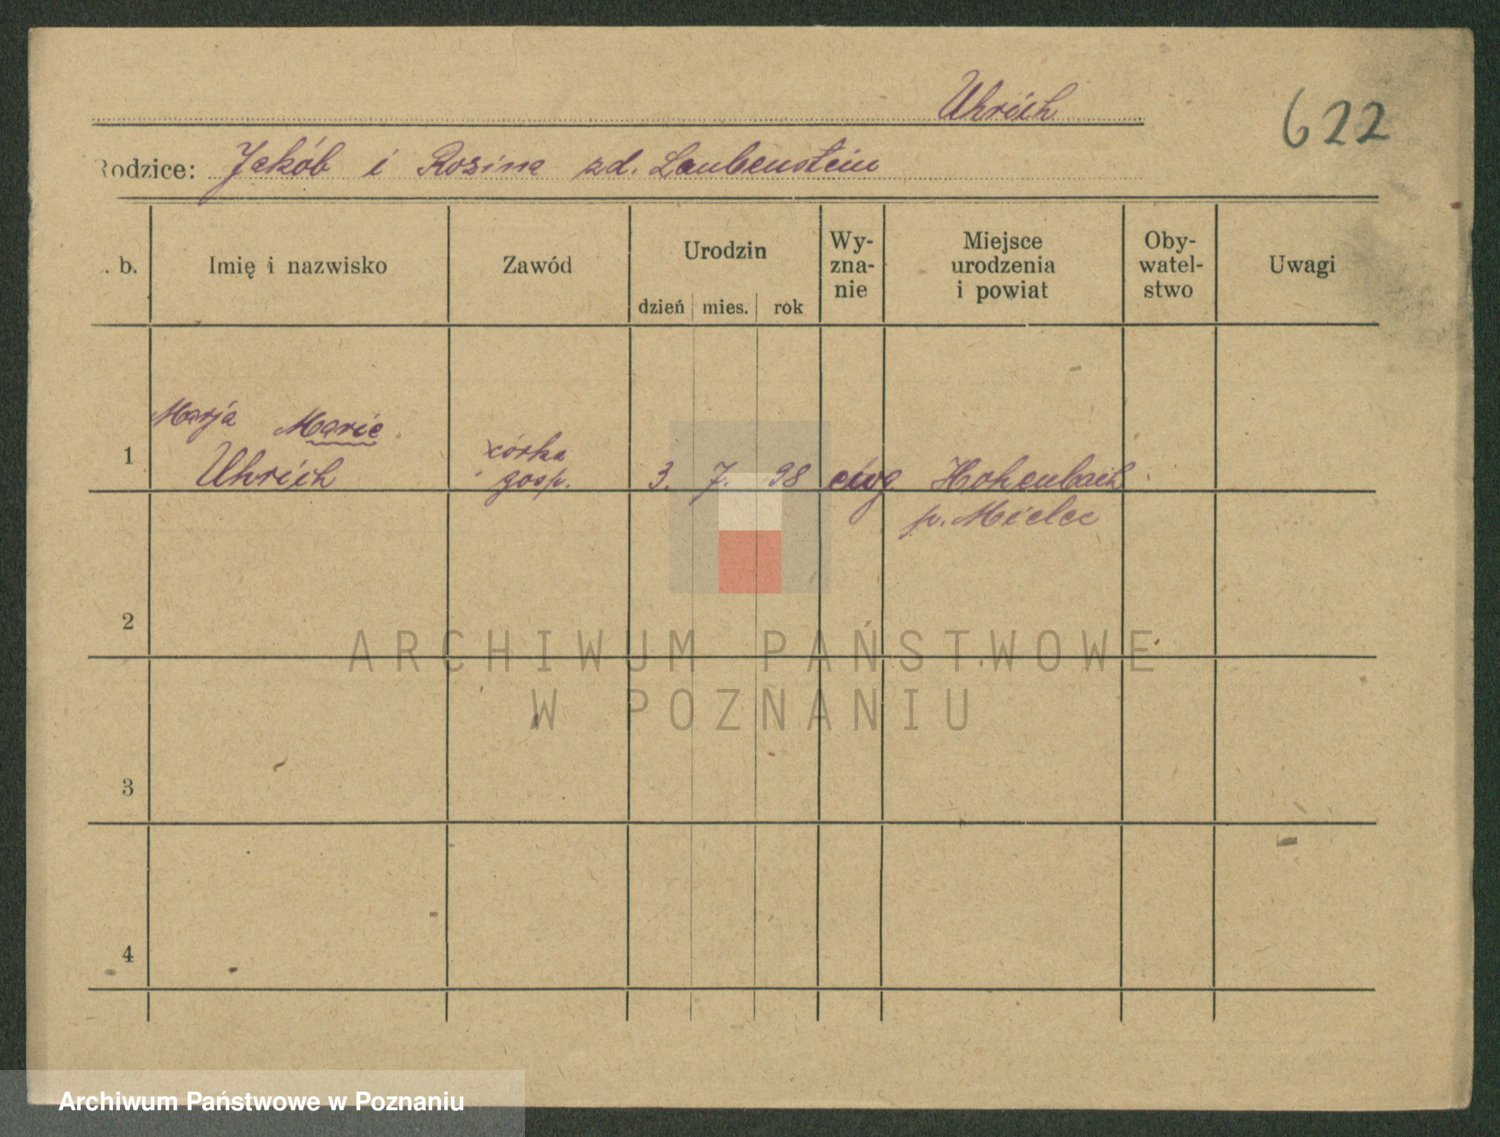 Uhrich
622
Rodzice: Jakób i Rosina zd. Laubenstein
. b.
Imię i nazwisko
Zawód
Urodzin
dzień mies. rok
Wy-
zna-
nie
Miejsce
urodzenia
i powiat
Oby-
watel-
stwo
Uwagi
1
Marja Marie
Uhrich
córka
gosp.
3. 7. 98
ewg
Hohenbach
p. Mielec
2
3
4
ARCHIWUM PAŃSTWOWE
W POZNANIU
Archiwum Państwowe w Poznaniu